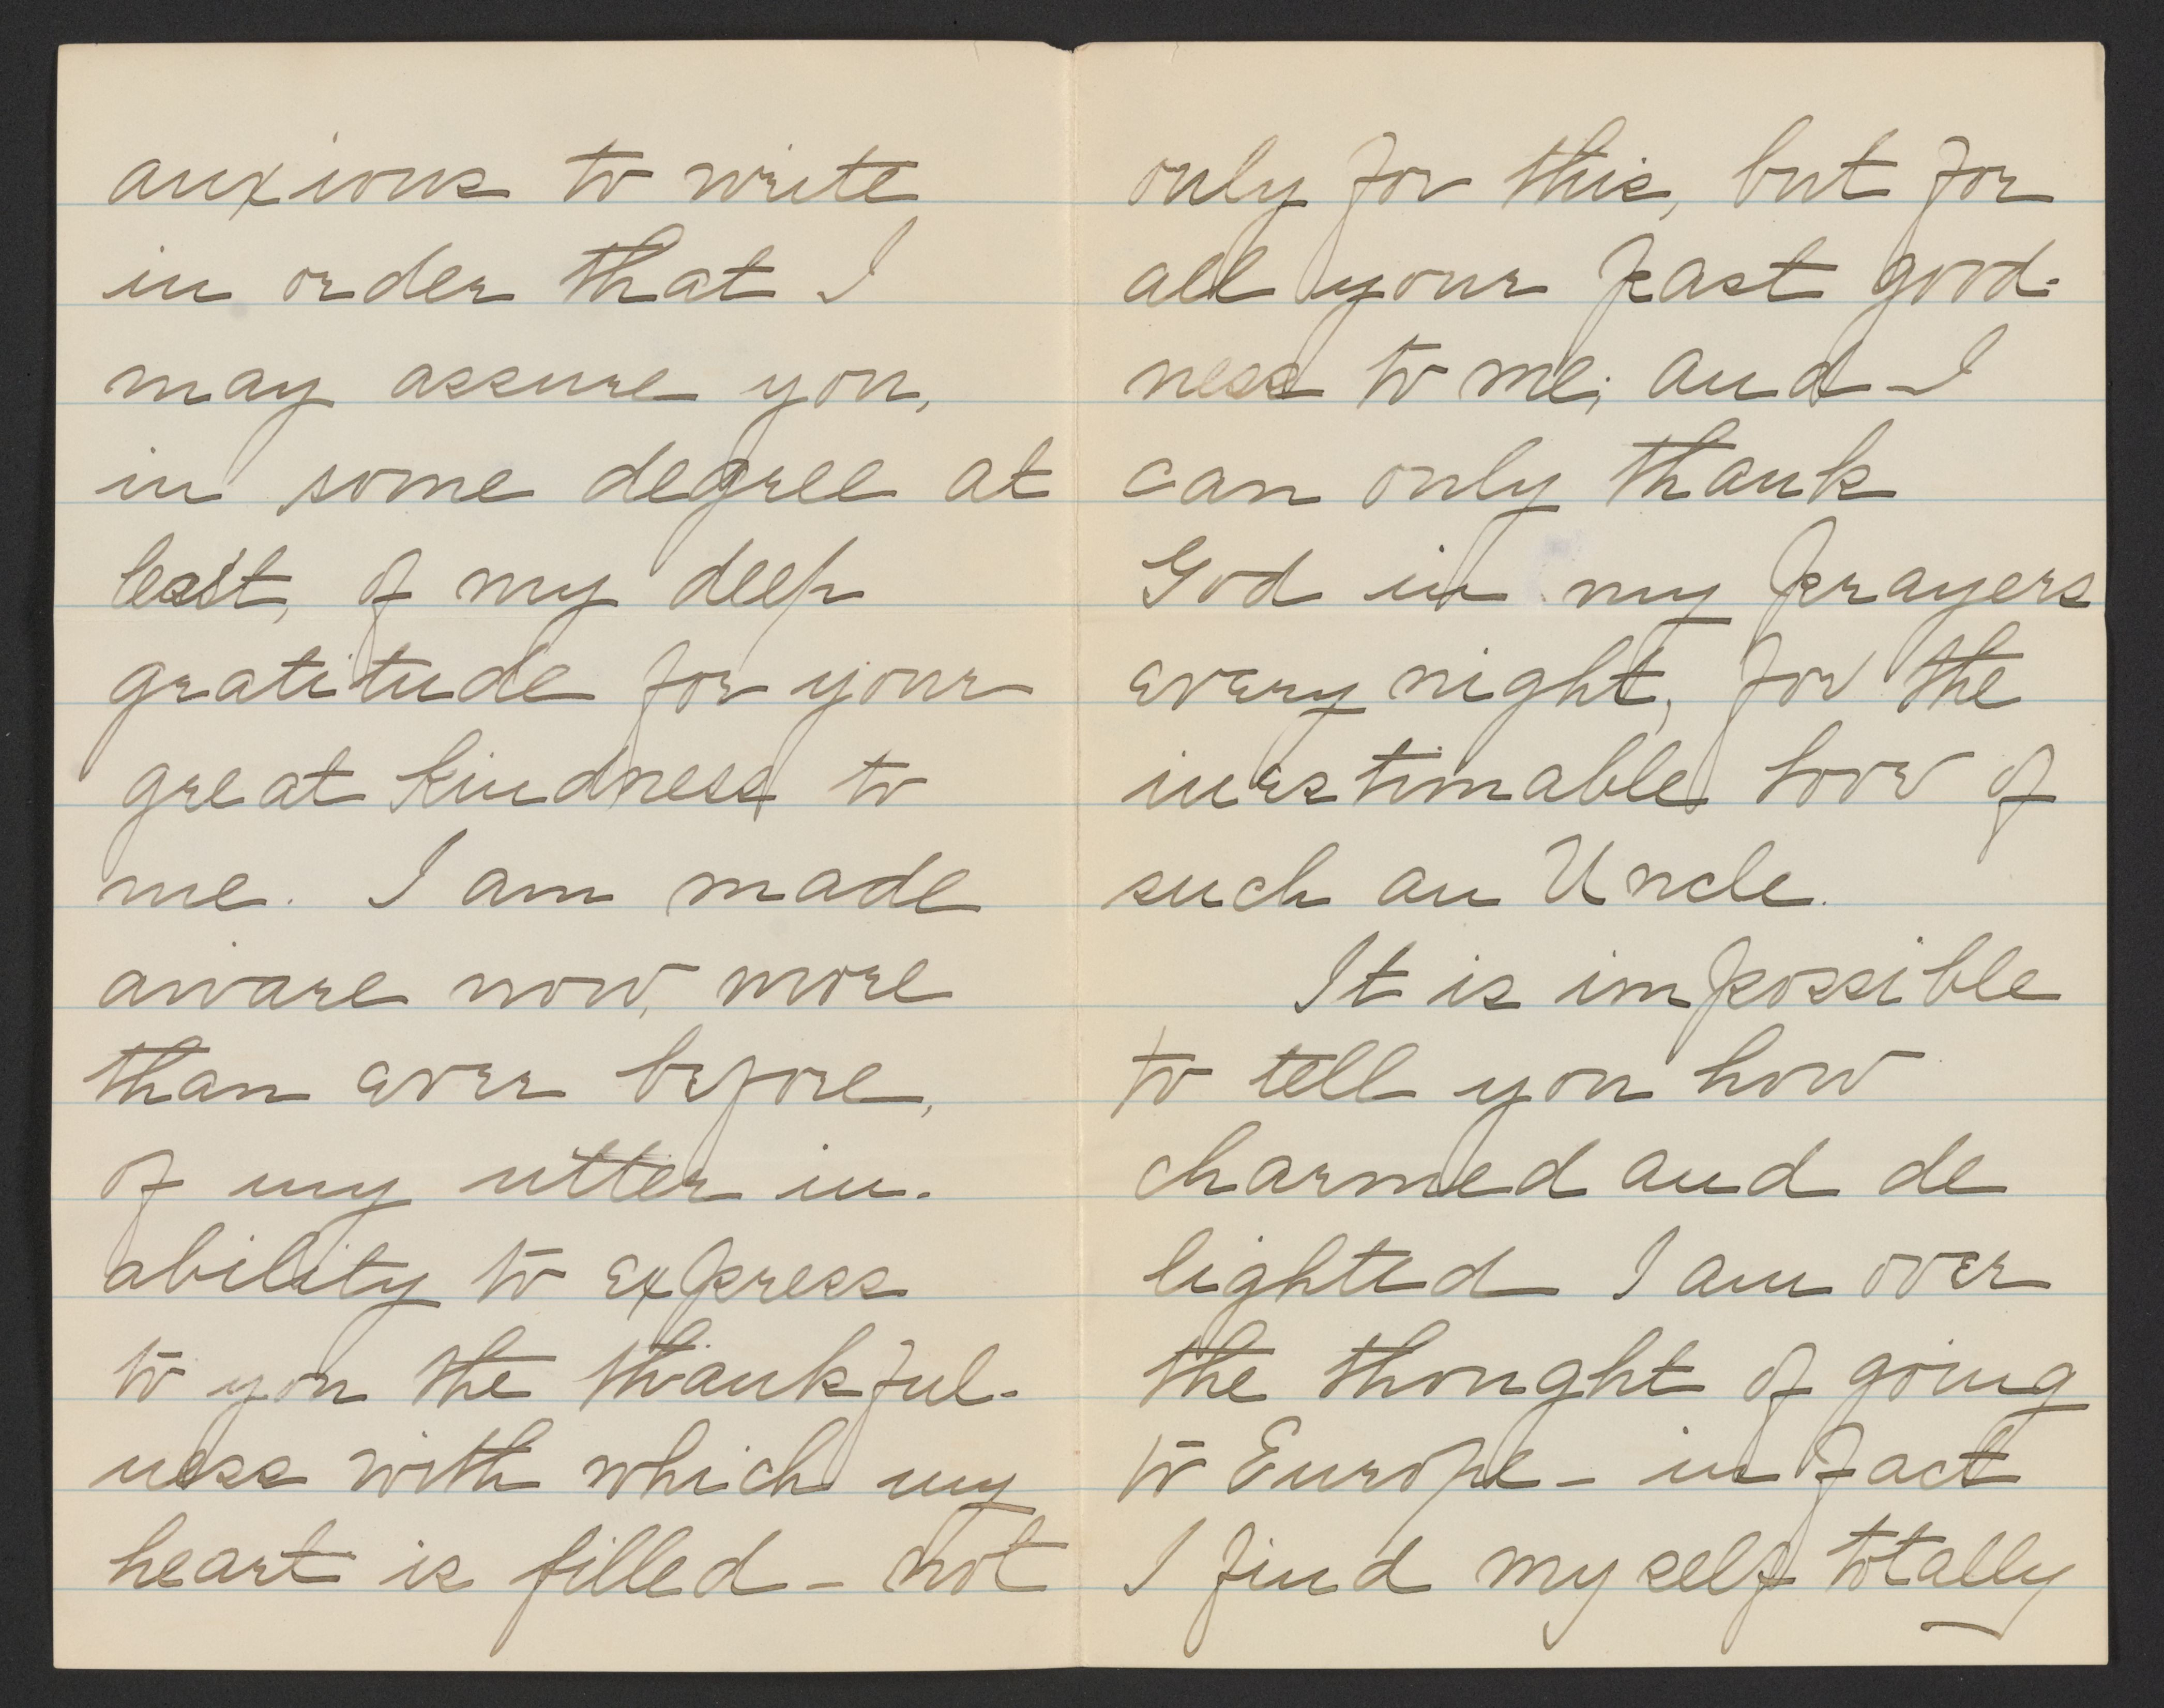 anxious to write
in order that I
may assure you,
in some degree at
least, of my deep
gratitude for your
great kindness to
me. I am made
aware now, more
than ever before,
of my utter in-
ability to express
to you the thankful-
ness with which my
heart is filled - not
only for this, but for
all your past good-
ness to me; and I
can only thank
God in my prayers
every night, for the
inestimable love of
such an Uncle.
It is impossible
to tell you how
charmed and de
lighted I am over
the thought of going
to Europe - in fact
I find myself totally